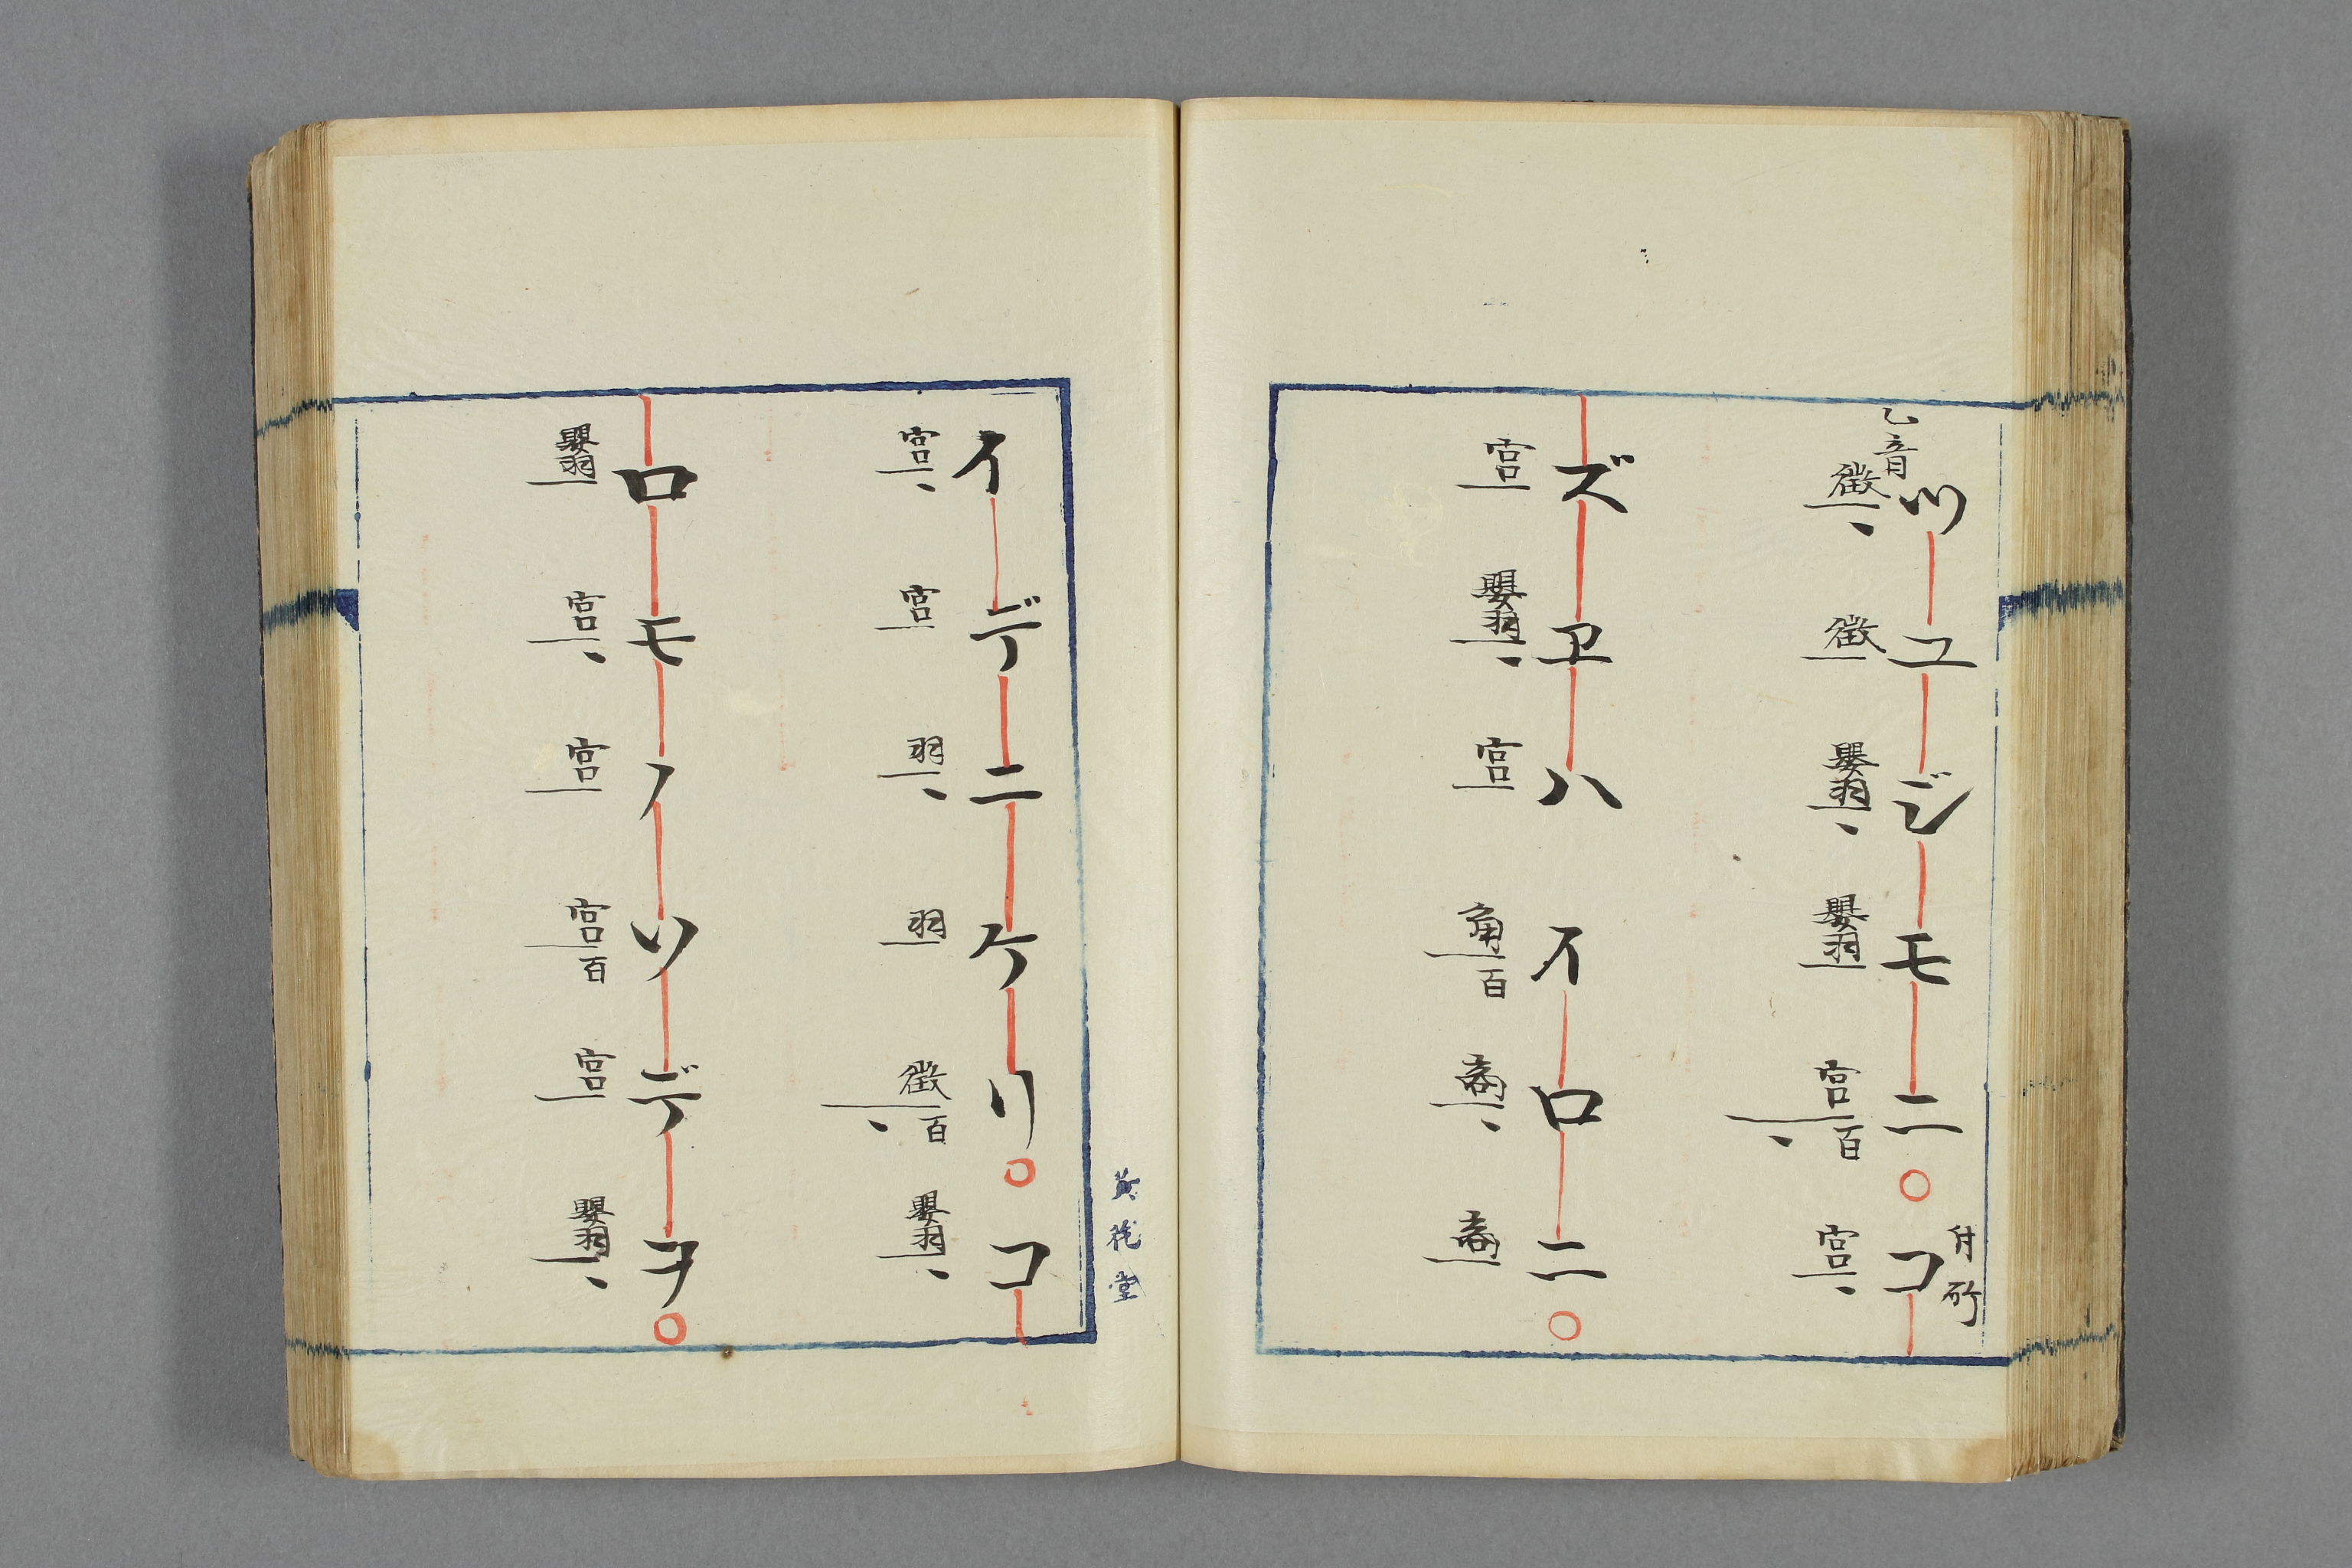 乙音
ツユジモニ○コ
付所
徴、徴嬰羽、嬰羽宮百、宮、
ズヱハイロニ○
宮嬰羽、宮角百商、商
イデニケリ○コ
宮、宮羽、羽徴百、嬰羽、
ロモノソデヲ○
嬰羽宮、宮宮百宮嬰羽、
堂